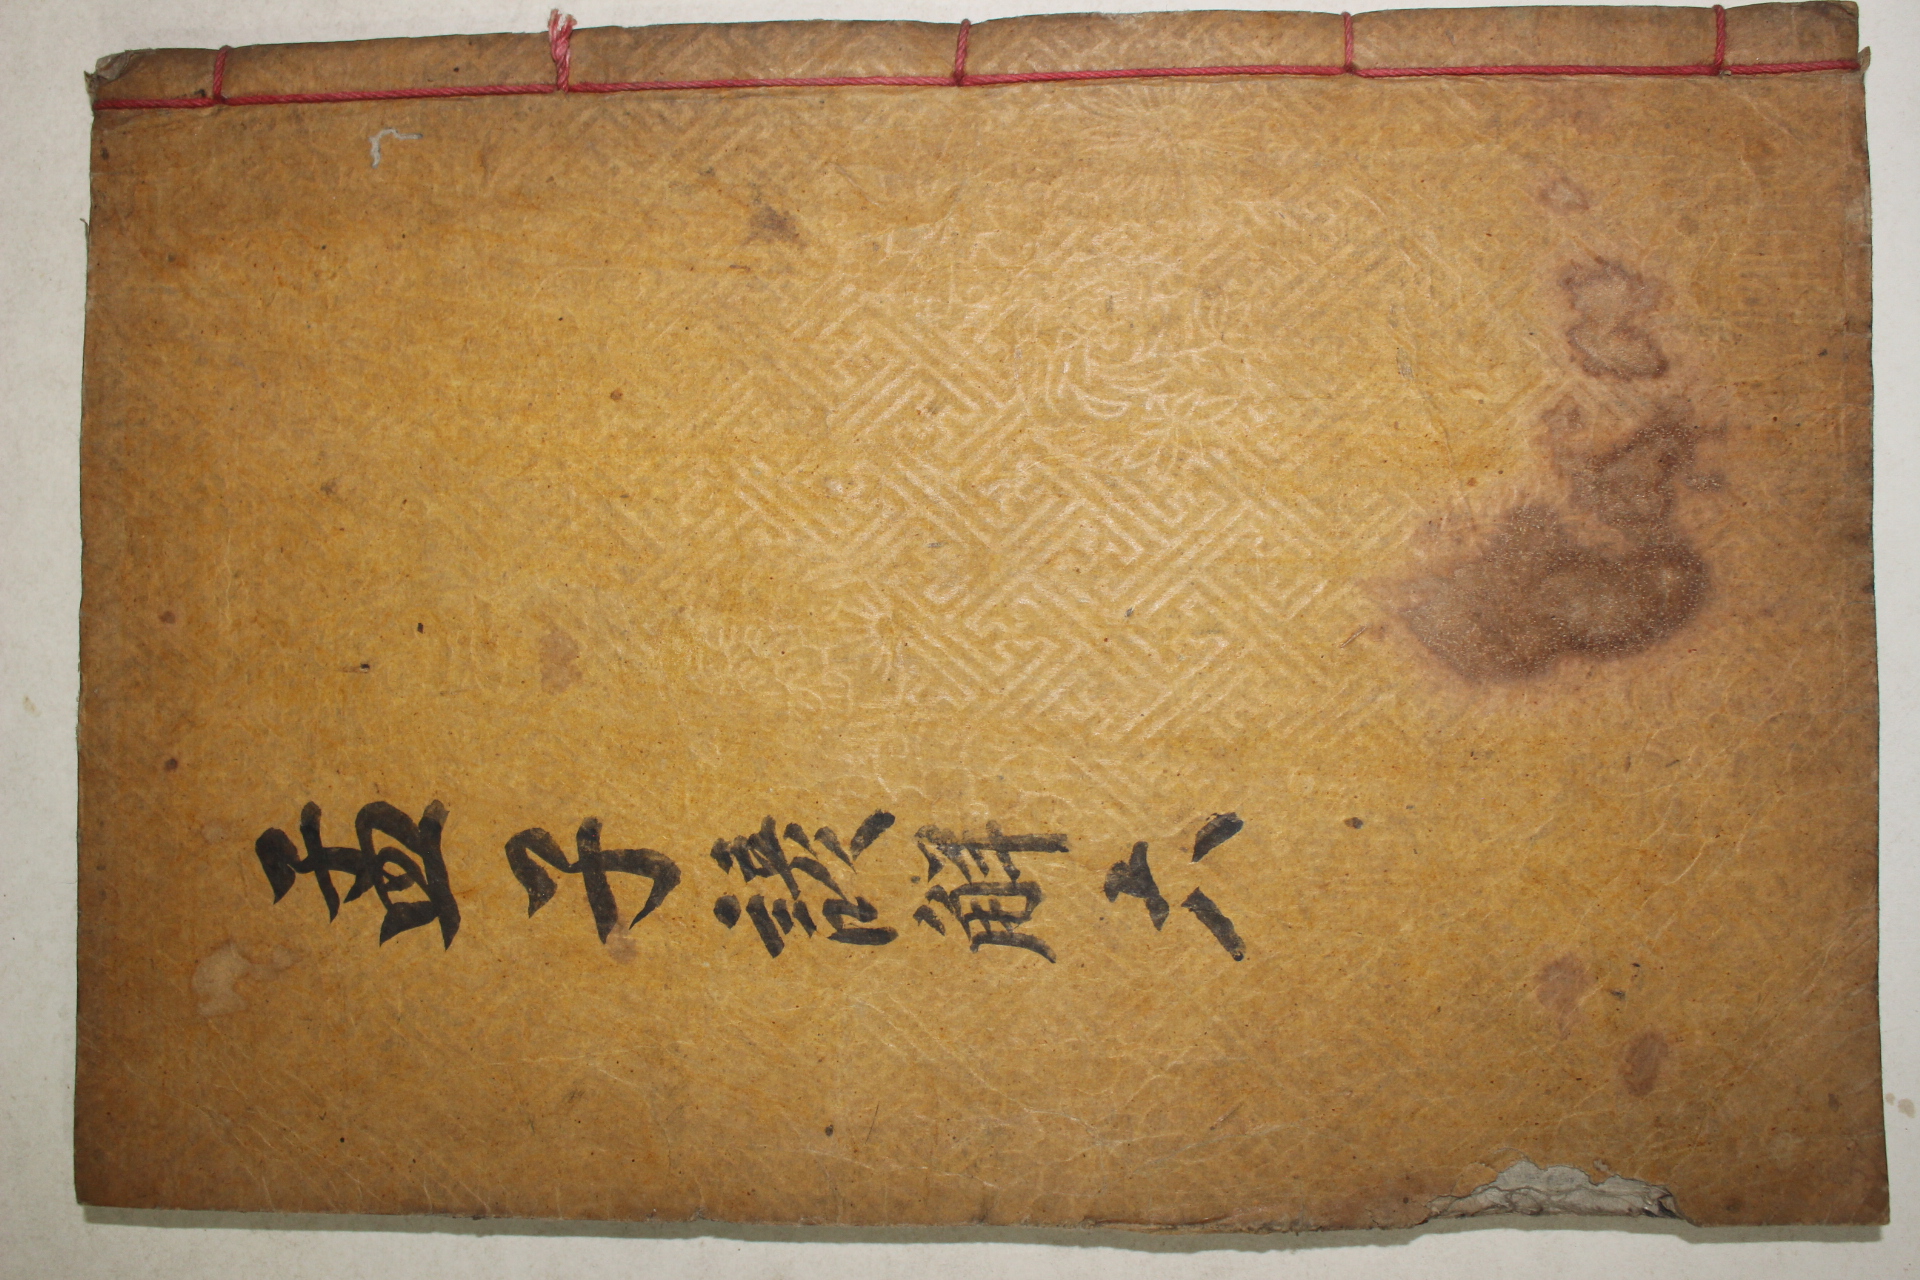 孟子諺解 六